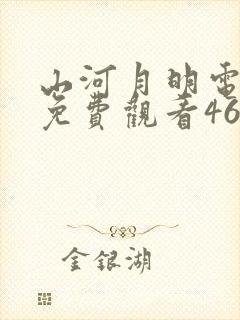 山河月明電
免費觀看46
金銀湖